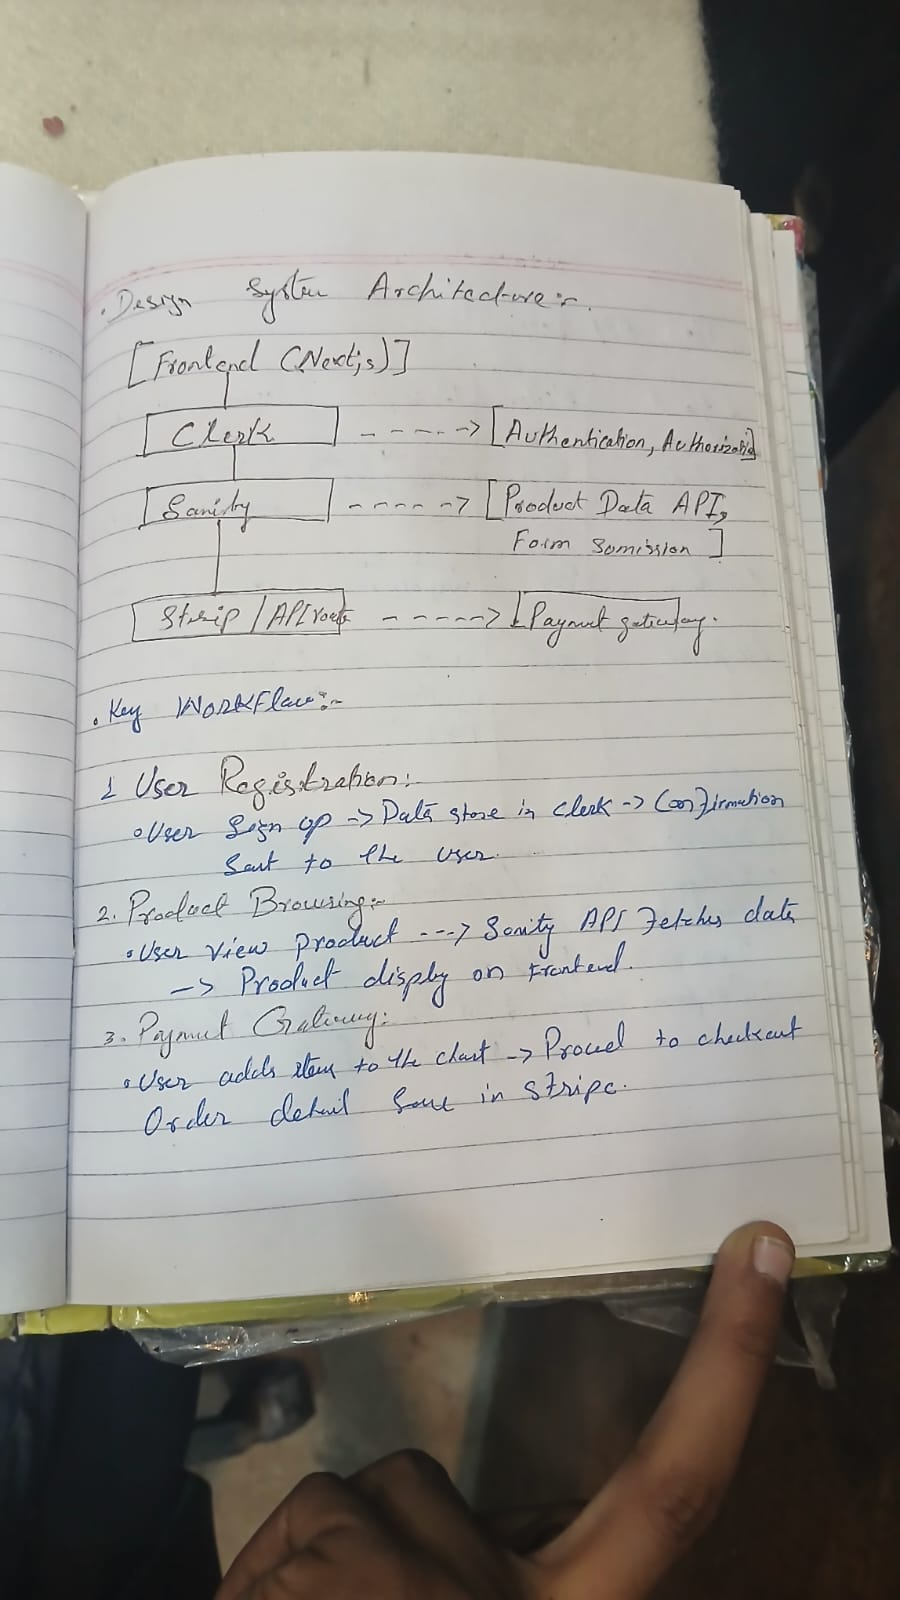 . Design System Architecture:-
[Frontend (Nextjs)]
Clerk ----> [Authentication, Authorizatio]
Sanity ----> [Product Data API,
Form Sumission ]
Strip / API route ----> [Payment gateway.
. Key WorkFlow:-
1 User Registration:
User Sign up -> Data store in Clerk -> Confirmation
Sent to the user.
2. Product Browsing:-
User view product ---> Sanity API Fetches data
-> Product display on Frontend.
3. Payment Gateway:
User adds item to the chart -> Proceed to checkout
Order detail Save in stripe.